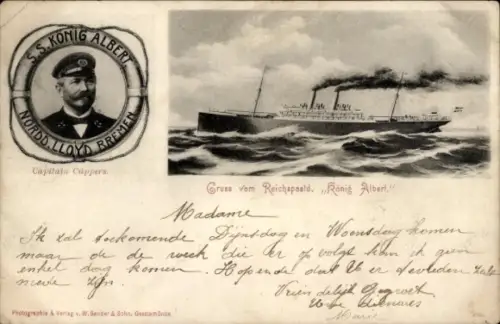 S.S. KÖNIG ALBERT
NORDD. LLOYD BREMEN
Capitain Cüppers.
Gruss vom Reichspostd. „König Albert."
Madame
Ik zal toekomende Dijnsdag en Woensdag komen
maar de de week die er op volgt kan ik geen
enkel dag komen. Hopende dat U er tevreden zult
mede zijn.
Vriendelijk Gegroet
Uwe dienares
Marie
Photographie & Verlag v. W. Sander & Sohn, Geestemünde.